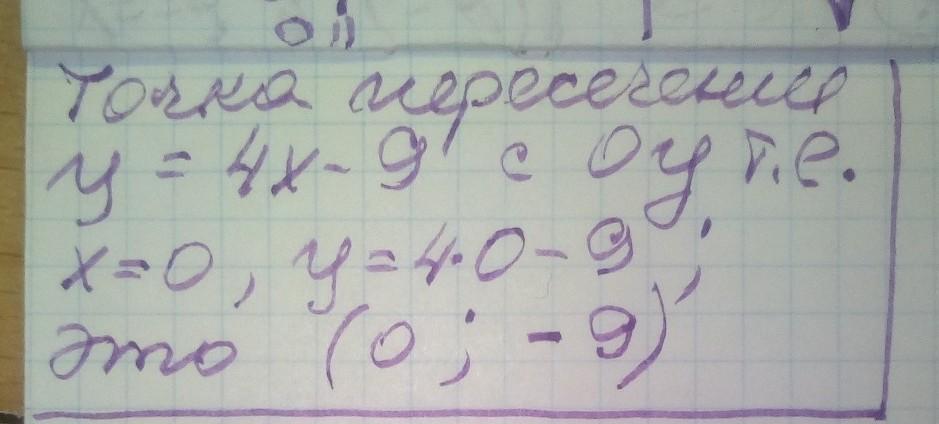 Точка пересечения
y = 4x - 9 с Oy т.е.
x = 0, y = 4·0 - 9;
это (0; -9)